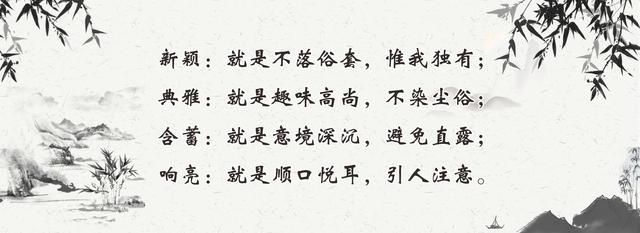 新颖：就是不落俗套，惟我独有；
典雅：就是趣味高尚，不染尘俗；
含蓄：就是意境深沉，避免直露；
响亮：就是顺口悦耳，引人注意。